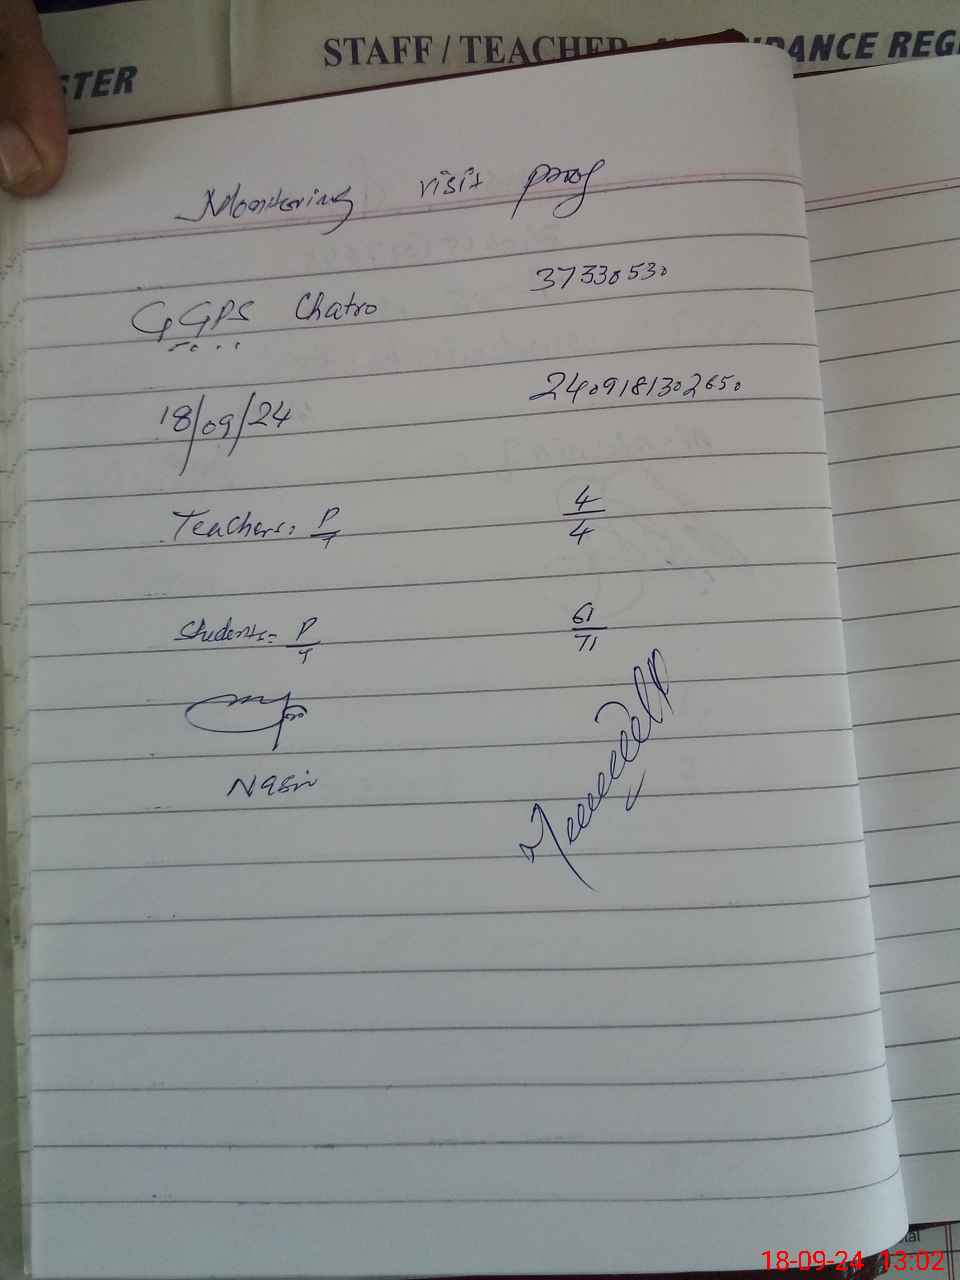 STER STAFF / TEACHER DANCE REG
Monitoring visit proof
GGPS Chatro 37330530
18/09/24 2409181302650
Teachers: P/T 4/4
Students= P/T 61/71
Nasir
18-09-24 13:02